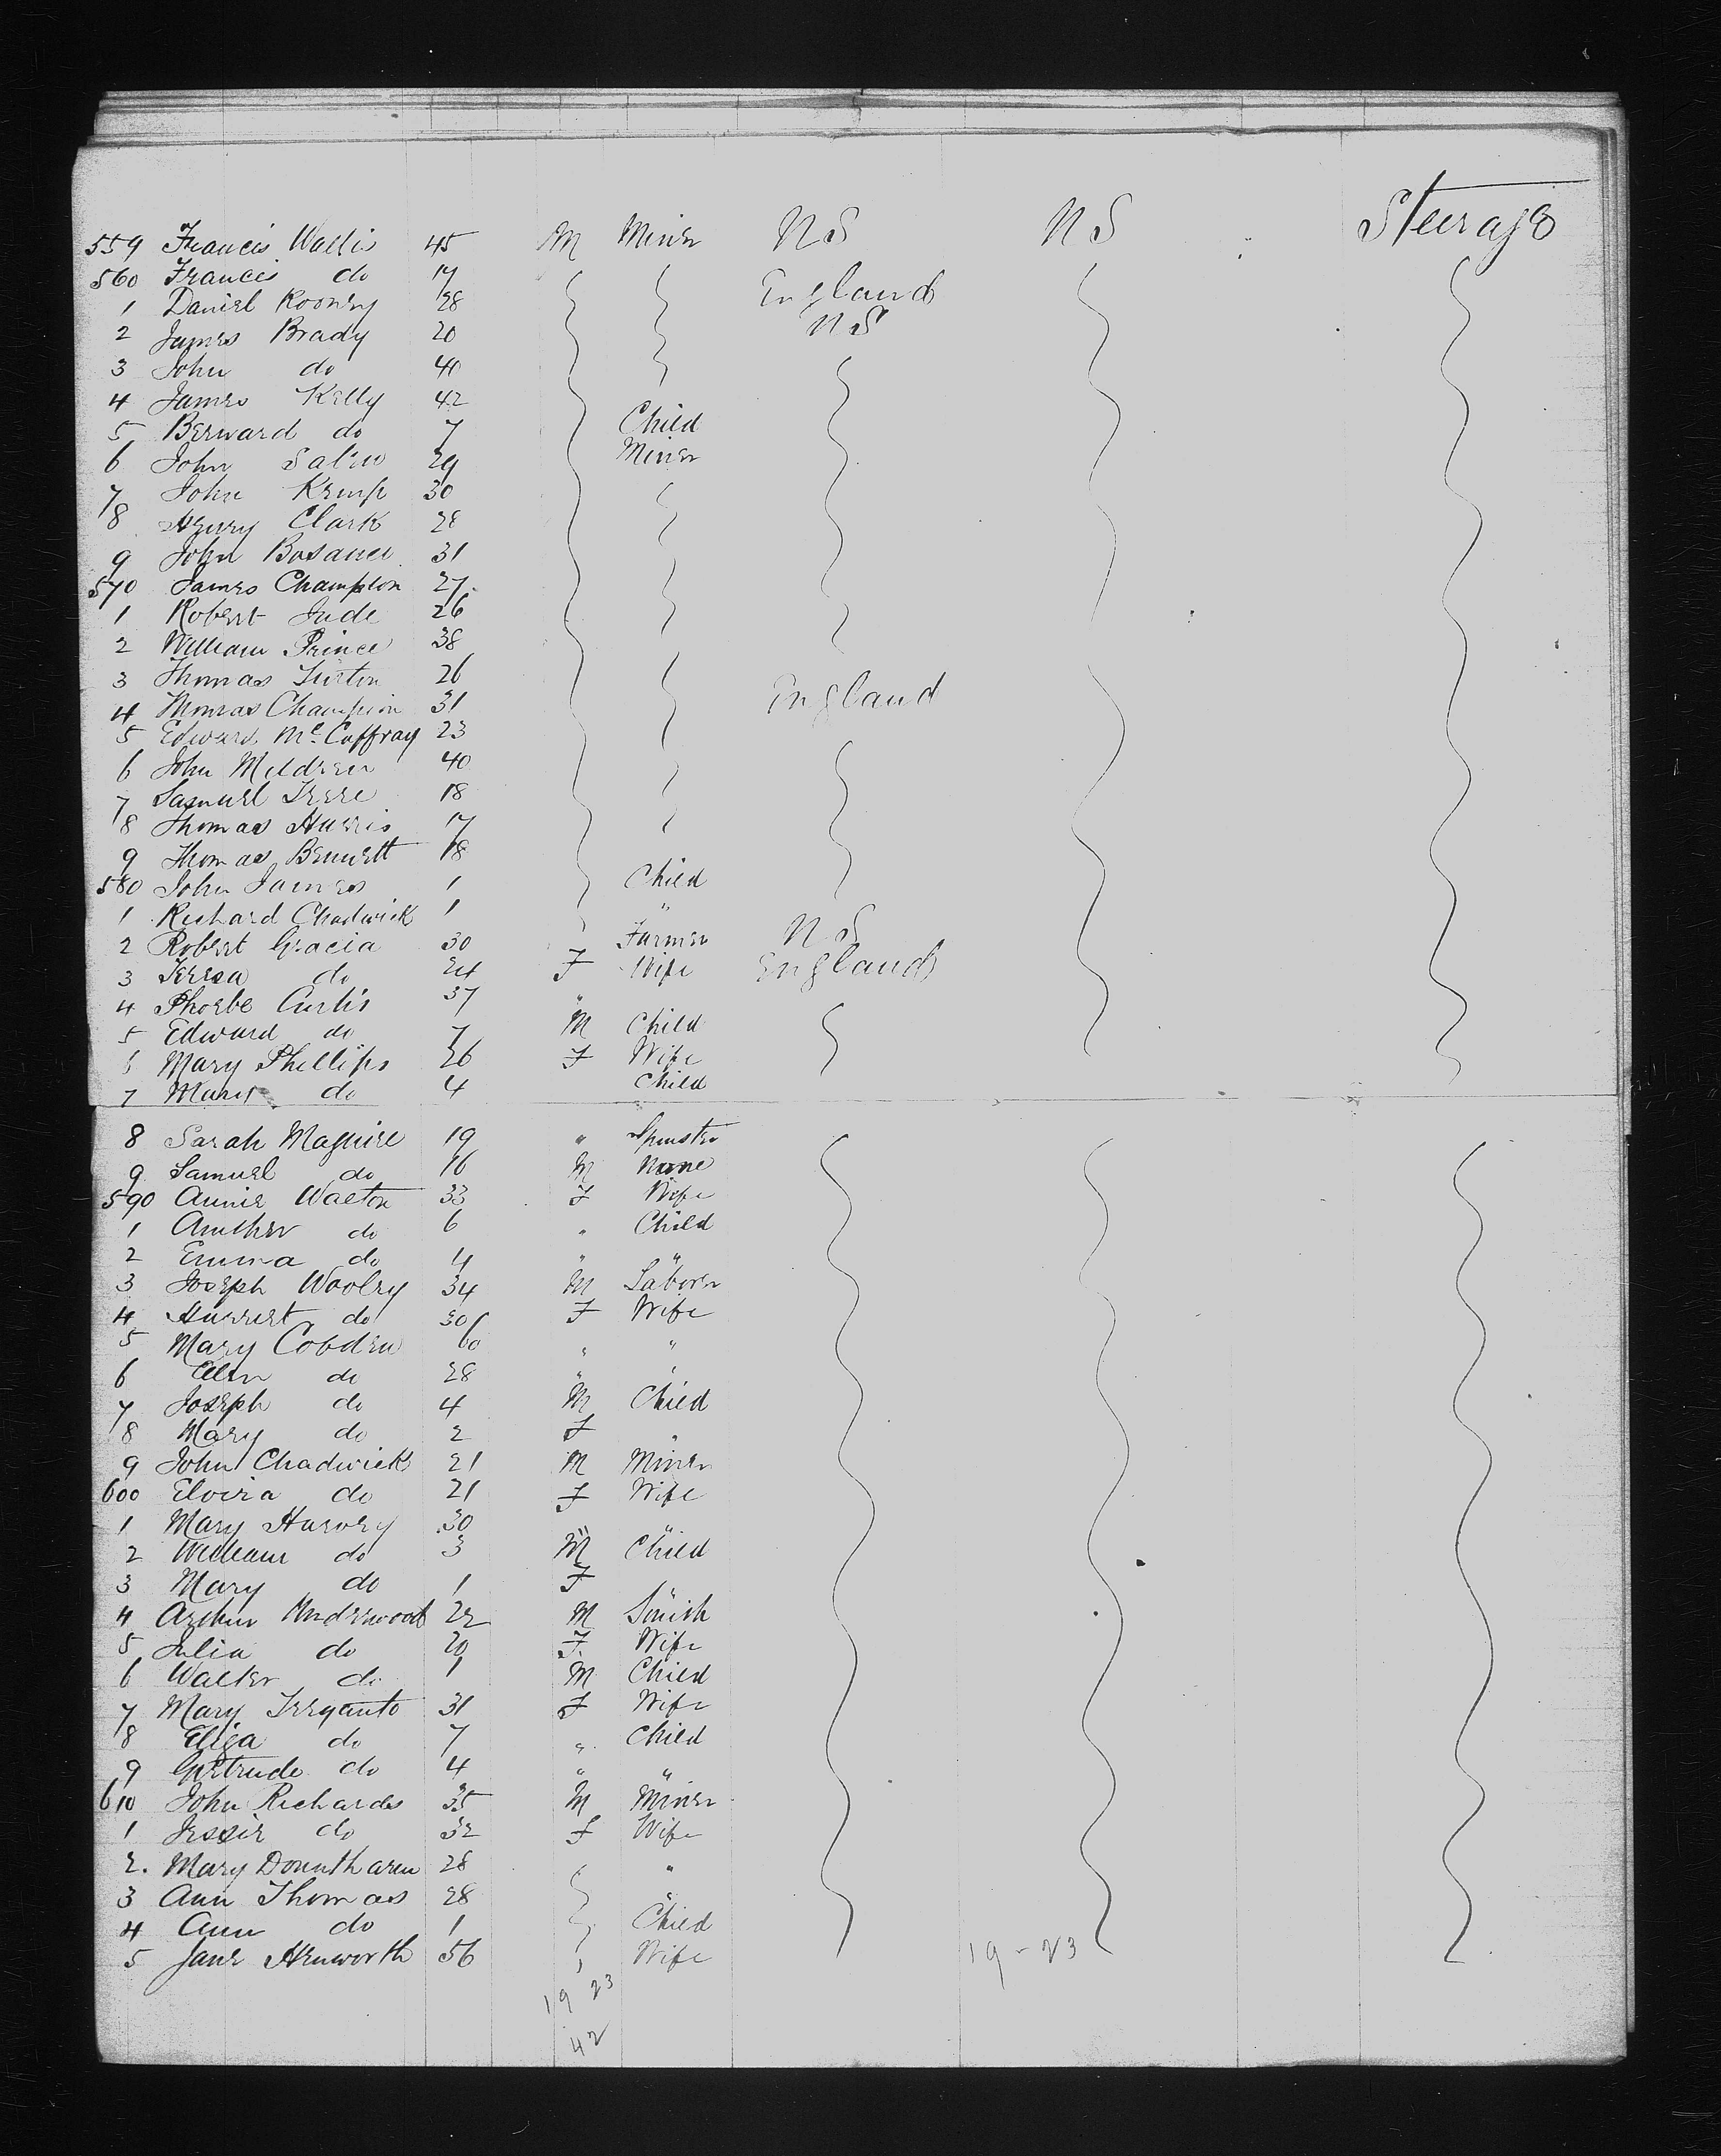 559 Francis Wallis 45 M Miner US US Steerage
560 Francis do 17 England
1 Daniel Rooney 28 US
2 James Brady 20
3 John do 40
4 James Kelly 42
5 Bernard do 7 Child
6 John 29 Miner
7 John Kemp 30
8 Henry Clark 28
9 John Bosanei 31
570 James Champion 27
1 Robert Jude 26
2 William Prince 38
3 Thomas Turton 26 England
4 Thomas Champion 31
5 Edward McCaffray 23
6 John Mildren 40
7 Samuel 18
8 Thomas Harris 17
9 Thomas Bennett 18
580 John James 1 Child
1 Richard Chadwick 1 "
2 Robert Gracia 30 Farmer US
3 Teresa do 24 F Wife England
4 Phoebe Curtis 37 "
5 Edward do 7 M Child
6 Mary Phillips 26 F Wife
7 Mary do 4 Child
8 Sarah Maguire 19 " Spinster
9 Samuel do 16 M None
590 Annie Walton 33 F Wife
1 do 6 " Child
2 Emma do 4 " "
3 Joseph Wooley 34 M Laborer
4 Harriet do 30 F Wife
5 Mary Cobden 60 " "
6 Ellen do 28 " "
7 Joseph do 4 M Child
8 Mary do 2 F "
9 John Chadwick 21 M Miner
600 Elvira do 21 F Wife
1 Mary Harvey 30 " "
2 William do 3 M Child
3 Mary do 1 F "
4 Arthur Underwood 22 M Smith
5 Julia do 20 F. Wife
6 Walter do 1 M Child
7 Mary 31 F Wife
8 Eliza do 7 " Child
9 Gertrude do 4 " "
610 John Richards 35 M Miner
1 Jessie do 32 F Wife
2. Mary 28 "
3 Ann Thomas 28 "
4 Ann do 1 Child
5 Jane Henworth 56 Wife 19-23
19 23
42